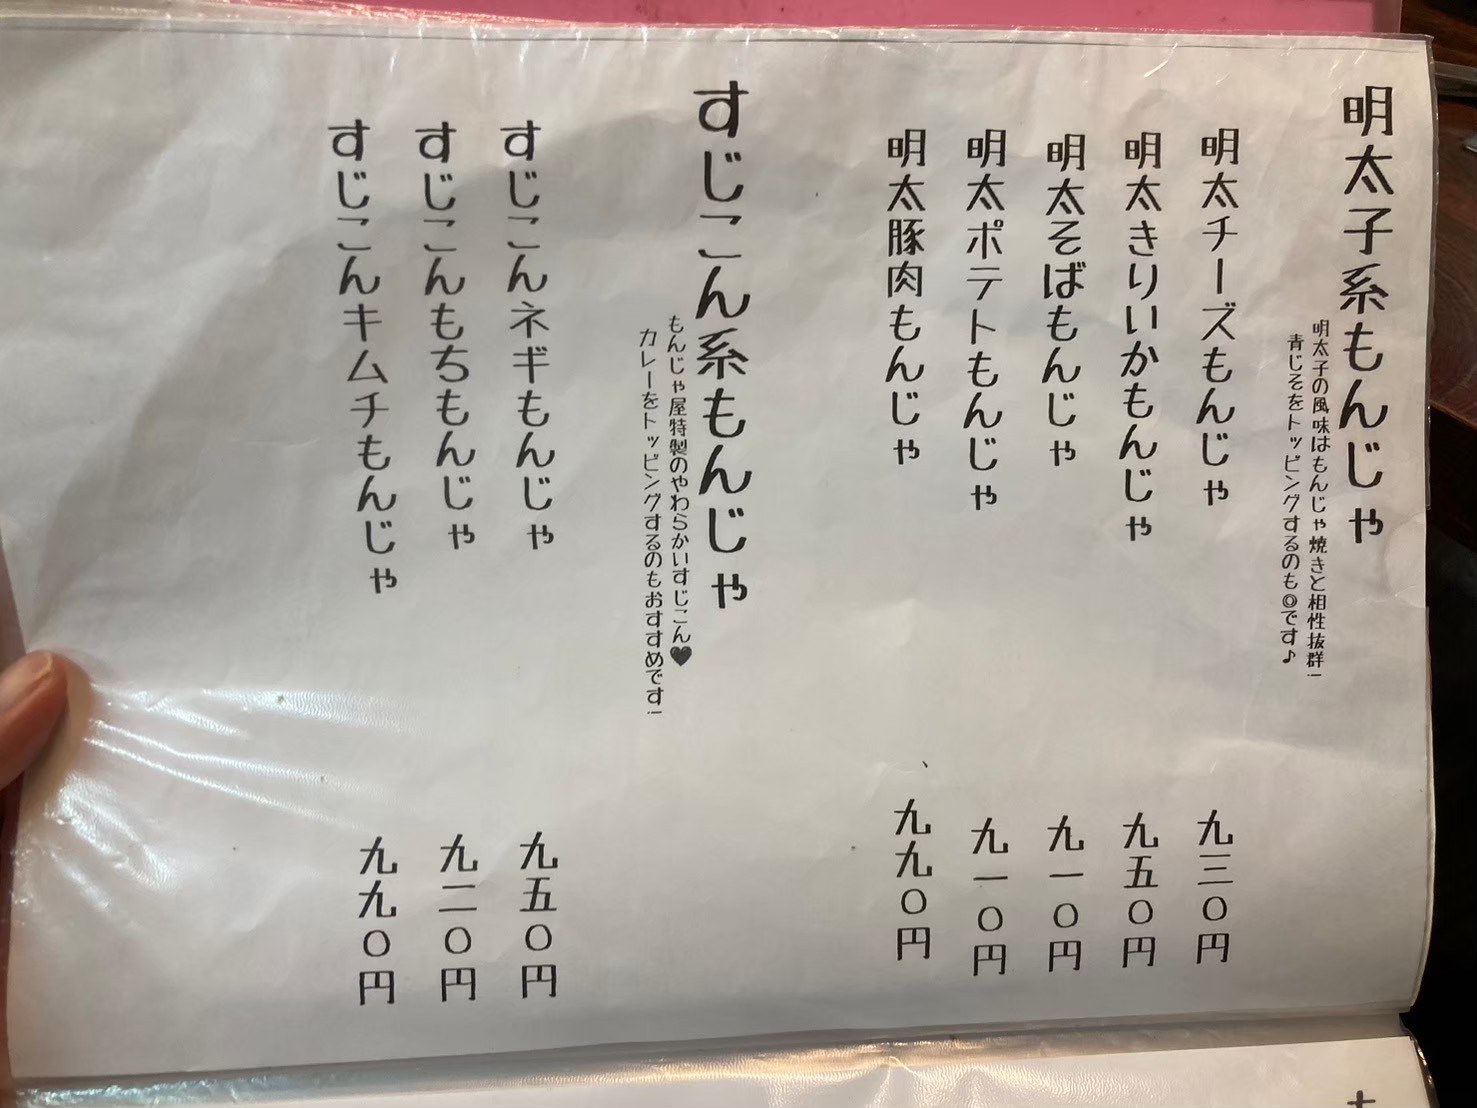 明太子系もんじゃ
明太子の風味はもんじゃ焼きと相性抜群!
青じそをトッピングするのも◎です♪
明太チーズもんじゃ 九三〇円
明太きりいかもんじゃ 九五〇円
明太そばもんじゃ 九一〇円
明太ポテトもんじゃ 九一〇円
明太豚肉もんじゃ 九九〇円
すじこん系もんじゃ
もんじゃ屋特製のやわらかいすじこん♥
カレーをトッピングするのもおすすめです!
すじこんネギもんじゃ 九五〇円
すじこんもちもんじゃ 九二〇円
すじこんキムチもんじゃ 九九〇円